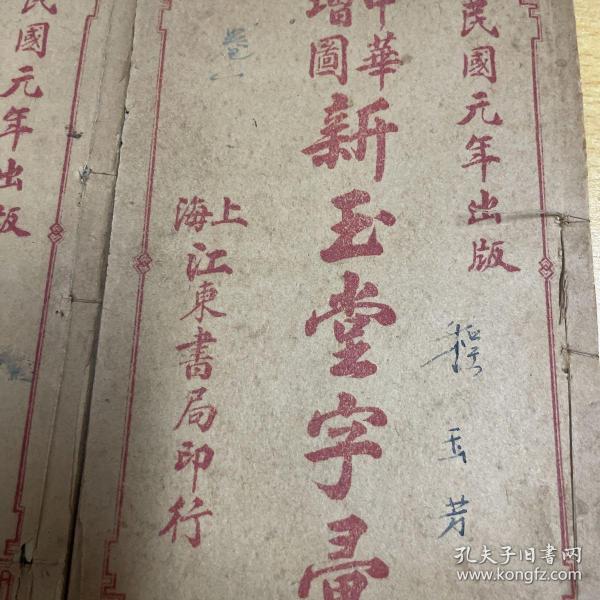 民國元年出版
中華
增圖
新玉堂字彙
上海
江東書局印行
民國元年出版
玉芳
卷一
孔夫子旧书网
www.kongfz.com